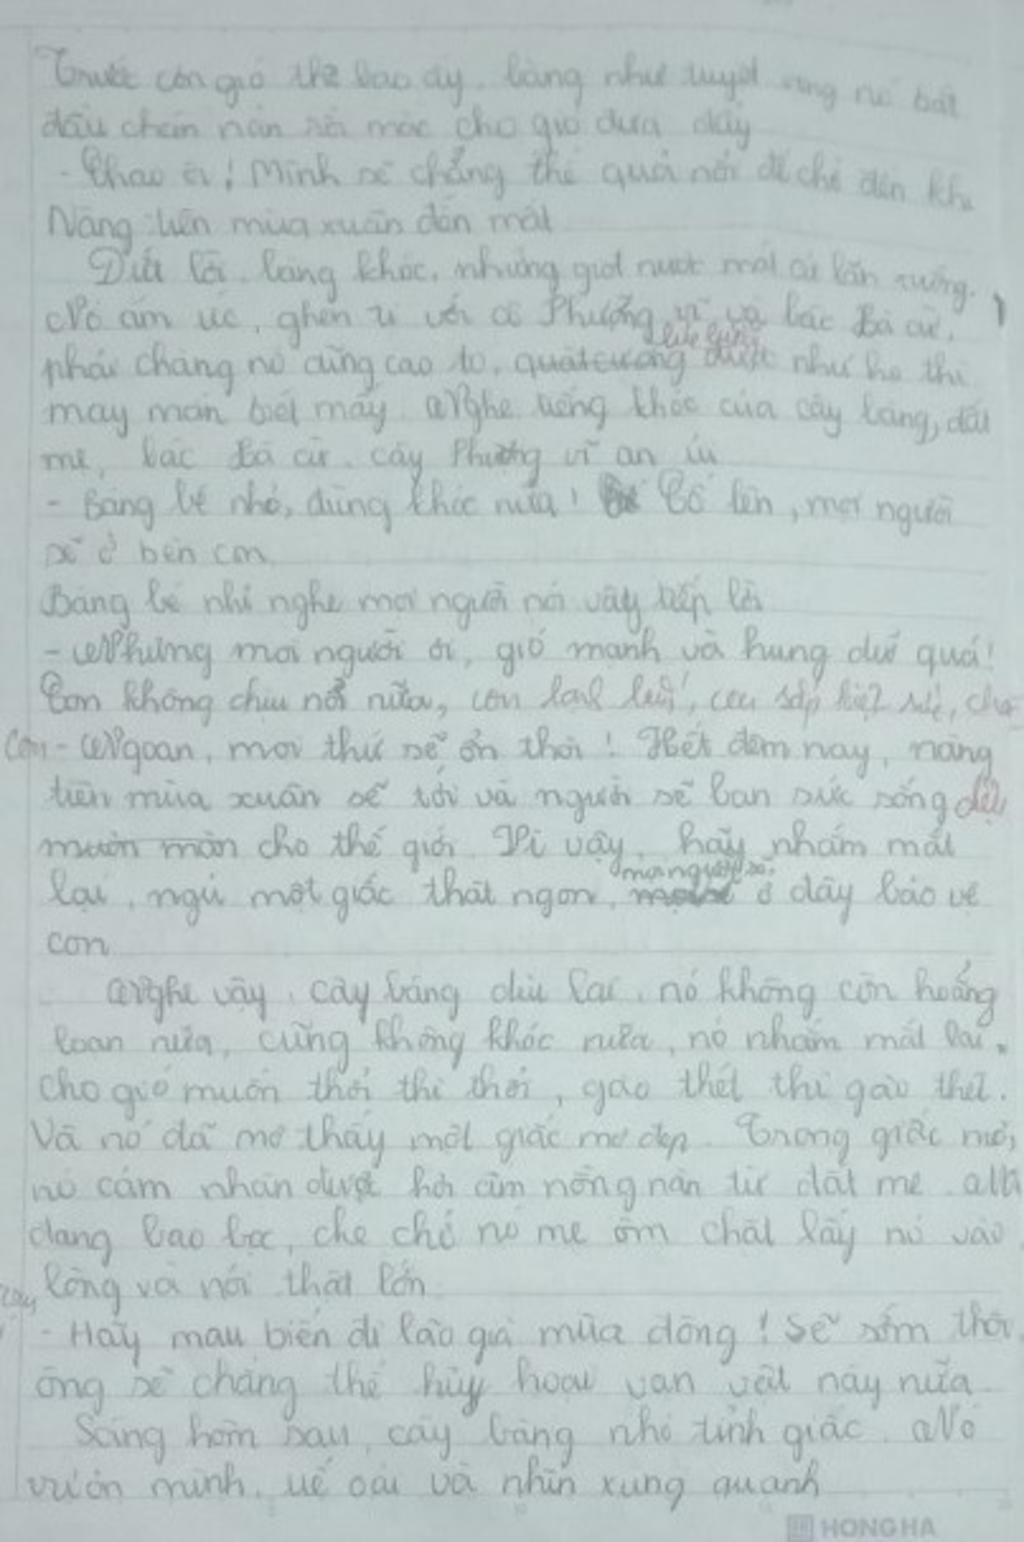 Trước cơn gió thô bạo ấy, bàng như tuyệt vọng nó bắt
đầu chán nản rồi mặc cho gió đưa đẩy
- Chao ôi! Mình sẽ chẳng thể quá nổi để chờ đến khi
Nàng tiên mùa xuân đến mất
Dứt lời, bàng khóc, những giọt nước mắt cứ lăn xuống.
Nó ấm ức, ghen tị với cô Phượng vĩ và bác Đa cừ,
phải chăng nó cũng cao to, được như họ thì
may mắn biết mấy. Nghe tiếng khóc của cây bàng, đất
mẹ, bác Đa cừ, cây Phượng vĩ an ủi
- Bàng bé nhỏ, đừng khóc nữa! Cố lên, mọi người
sẽ ở bên con
Bàng bé nhỏ nghe mọi người nói vậy tiếp lời
- Nhưng mọi người ơi, gió mạnh và hung dữ quá!
Con không chịu nổi nữa, con lạnh con sắp kiệt
- Ngoan, mọi thứ sẽ ổn thôi! Hết đêm nay, nàng
tiên mùa xuân sẽ tới và người sẽ ban sức sống
muôn màn cho thế giới. Vì vậy, hãy nhắm mắt
mọi người sẽ
lại, ngủ một giấc thật ngon, ở đây bảo vệ
con
Nghe vậy, cây bàng dịu lại, nó không còn hoảng
loạn nữa, cũng không khóc nữa, nó nhắm mắt lại,
cho gió muốn thổi thì thổi, gào thét thì gào thét.
Và nó đã mơ thấy một giấc mơ đẹp. Trong giấc mơ,
nó cảm nhận được hơi ấm nồng nàn từ đất mẹ.
đang bao bọc, che chở nó mẹ ôm chặt lấy nó vào
lòng và nói thật lớn
- Hãy mau biến đi lão già mùa đông! Sẽ sớm thôi,
ông sẽ chẳng thể hủy hoại vạn vật này nữa
Sáng hôm sau, cây bàng nhỏ tỉnh giấc. Nó
vươn mình, uể oải và nhìn xung quanh
HONG HA